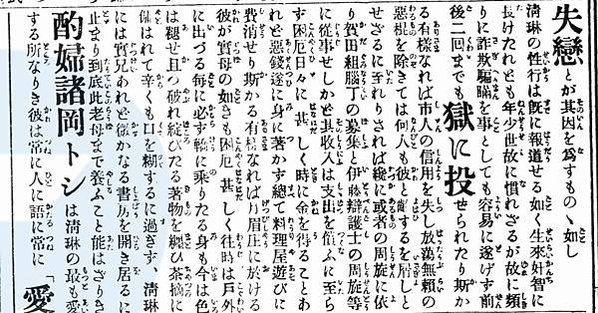 失戀とが其因を爲すものゝ如し
淸琳の性行は旣に報道せる如く生來奸智に
長けたれども年少世故に慣れざるが故に頻
りに詐欺騙瞞を事としても容易に遂げず前
後二回までも獄に投せられたり斯か
る有樣なれば市人の信用を失し放蕩無賴の
惡棍を除きては何人も彼と齒するを屑しと
せざるに至れり纔に或者の周旋に依
り賀田組腦丁の募集と伊藤辯護士の周旋等
に從事せしかど其收入は支出を償ふに至ら
ず困厄日々に甚しく時に金を得ることあ
れど惡錢遂に身に着かず總て料理屋遊びに
費消せり斯かる有樣なれば眉庄に於ける
彼が實母の如きも困厄甚しく往時は戶外
に出づる每に必ず轎に乘りたる身も今は色
は褪せ且つ破れ綻びたる著物を纒ひ茶摘に
傭はれて辛くも口を糊するに過ぎず、淸琳
には實兄あれど僅かなる書房を開き居るに
止まり到底此老母まで養ふこと能はざりき
酌婦諸岡トシは淸琳の最も愛
する所なりき彼は常に人に語に常に「愛